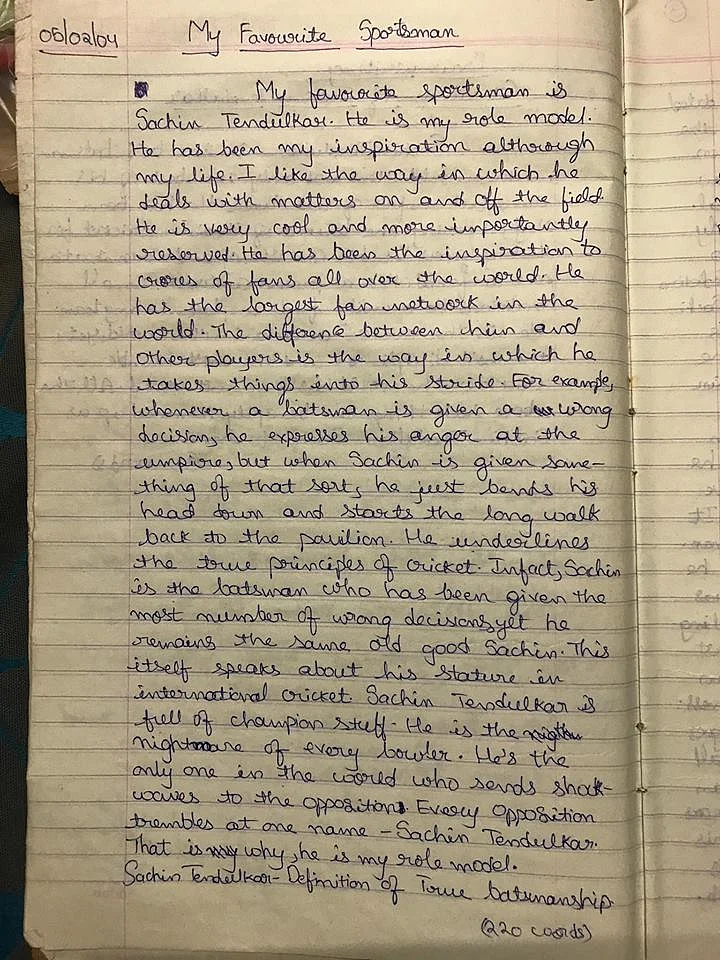 05/02/04
My Favourite Sportsman
My favourite sportsman is
Sachin Tendulkar. He is my role model.
He has been my inspiration althrough
my life. I like the way in which he
deals with matters on and off the field.
He is very cool and more importantly
reserved. He has been the inspiration to
crores of fans all over the world. He
has the largest fan network in the
world. The difference between him and
other players is the way in which he
takes things into his stride. For example,
whenever a batsman is given a wrong
decision, he expresses his anger at the
umpire, but when Sachin is given some-
thing of that sort, he just bends his
head down and starts the long walk
back to the pavilion. He underlines
the true principles of cricket. Infact, Sachin
is the batsman who has been given the
most number of wrong decisions, yet he
remains the same old good Sachin. This
itself speaks about his stature in
international cricket. Sachin Tendulkar is
full of champion stuff. He is the
nightmare of every bowler. He's the
only one in the world who sends shock-
waves to the opposition. Every opposition
trembles at one name - Sachin Tendulkar.
That is why, he is my role model.
Sachin Tendulkar - Definition of True batsmanship.
(220 words)